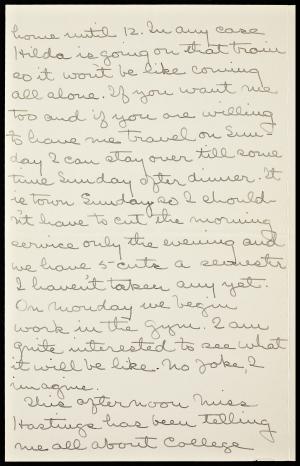 home until 12. In any case
Hilda is going on that train
so it won't be like coming
all alone. If you want me
too and if you are willing
to have me travel on Sun-
day I can stay over till some
time Sunday after dinner. It
is town Sunday so I should-
n't have to cut the morning
service only the evening and
we have 5 cuts a semester
I haven't taken any yet.
On Monday we begin
work in the Gym. I am
quite interested to see what
it will be like. No joke, I
imagine.
This afternoon Miss
Hastings has been telling
me all about College